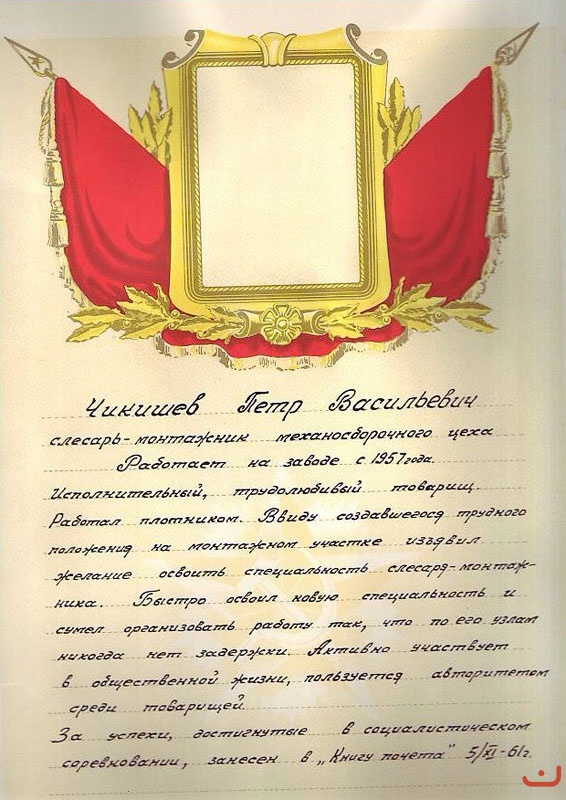 Чикишев Петр Васильевич
слесарь-монтажник механосборочного цеха
Работает на заводе с 1957 года.
Исполнительный, трудолюбивый товарищ.
Работал плотником. Ввиду создавшегося трудного
положения на монтажном участке изъявил
желание освоить специальность слесаря-монтаж-
ника. Быстро освоил новую специальность и
сумел организовать работу так, что по его узлам
никогда нет задержки. Активно участвует
в общественной жизни, пользуется авторитетом
среди товарищей.
За успехи, достигнутые в социалистическом
соревновании, занесен в „Книгу почета" 5/XI-61г.